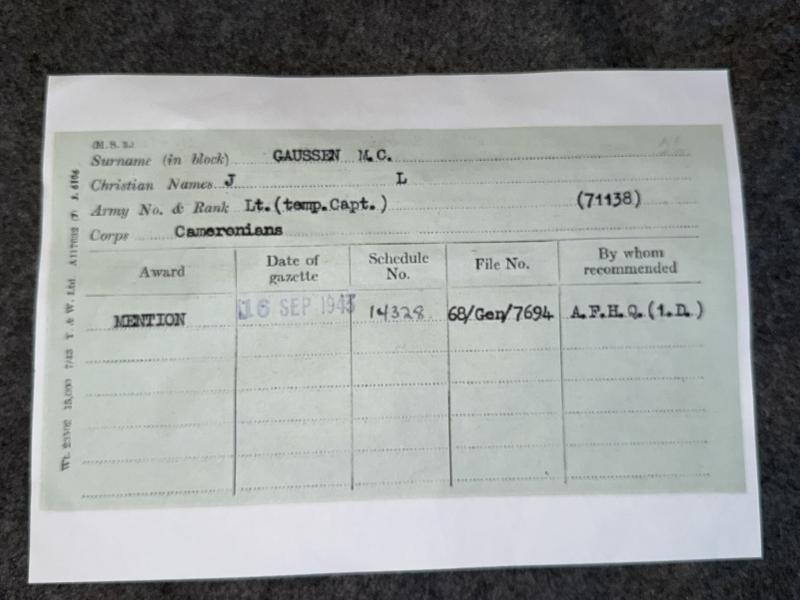 (M.S.3.)
Surname (in block) GAUSSEN M.C.
Christian Names J L
Army No. & Rank Lt.(temp.Capt.) (71138)
Corps Cameronians
Award Date of gazette Schedule No. File No. By whom recommended
MENTION 16 SEP 1943 14328 68/Gen/7694 A.F.H.Q.(1.D.)
Wt. 23302 15,000 7/43 T. & W. Ltd.